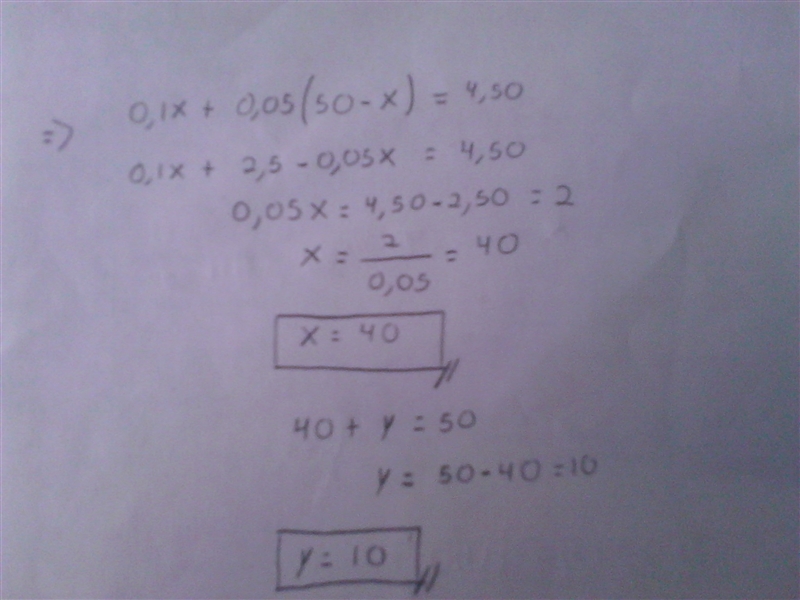 0,1x + 0,05(50 - x) = 4,50
=> 0,1x + 2,5 - 0,05x = 4,50
0,05x = 4,50 - 2,50 = 2
x = 2/0,05 = 40
x = 40
40 + y = 50
y = 50 - 40 = 10
y = 10